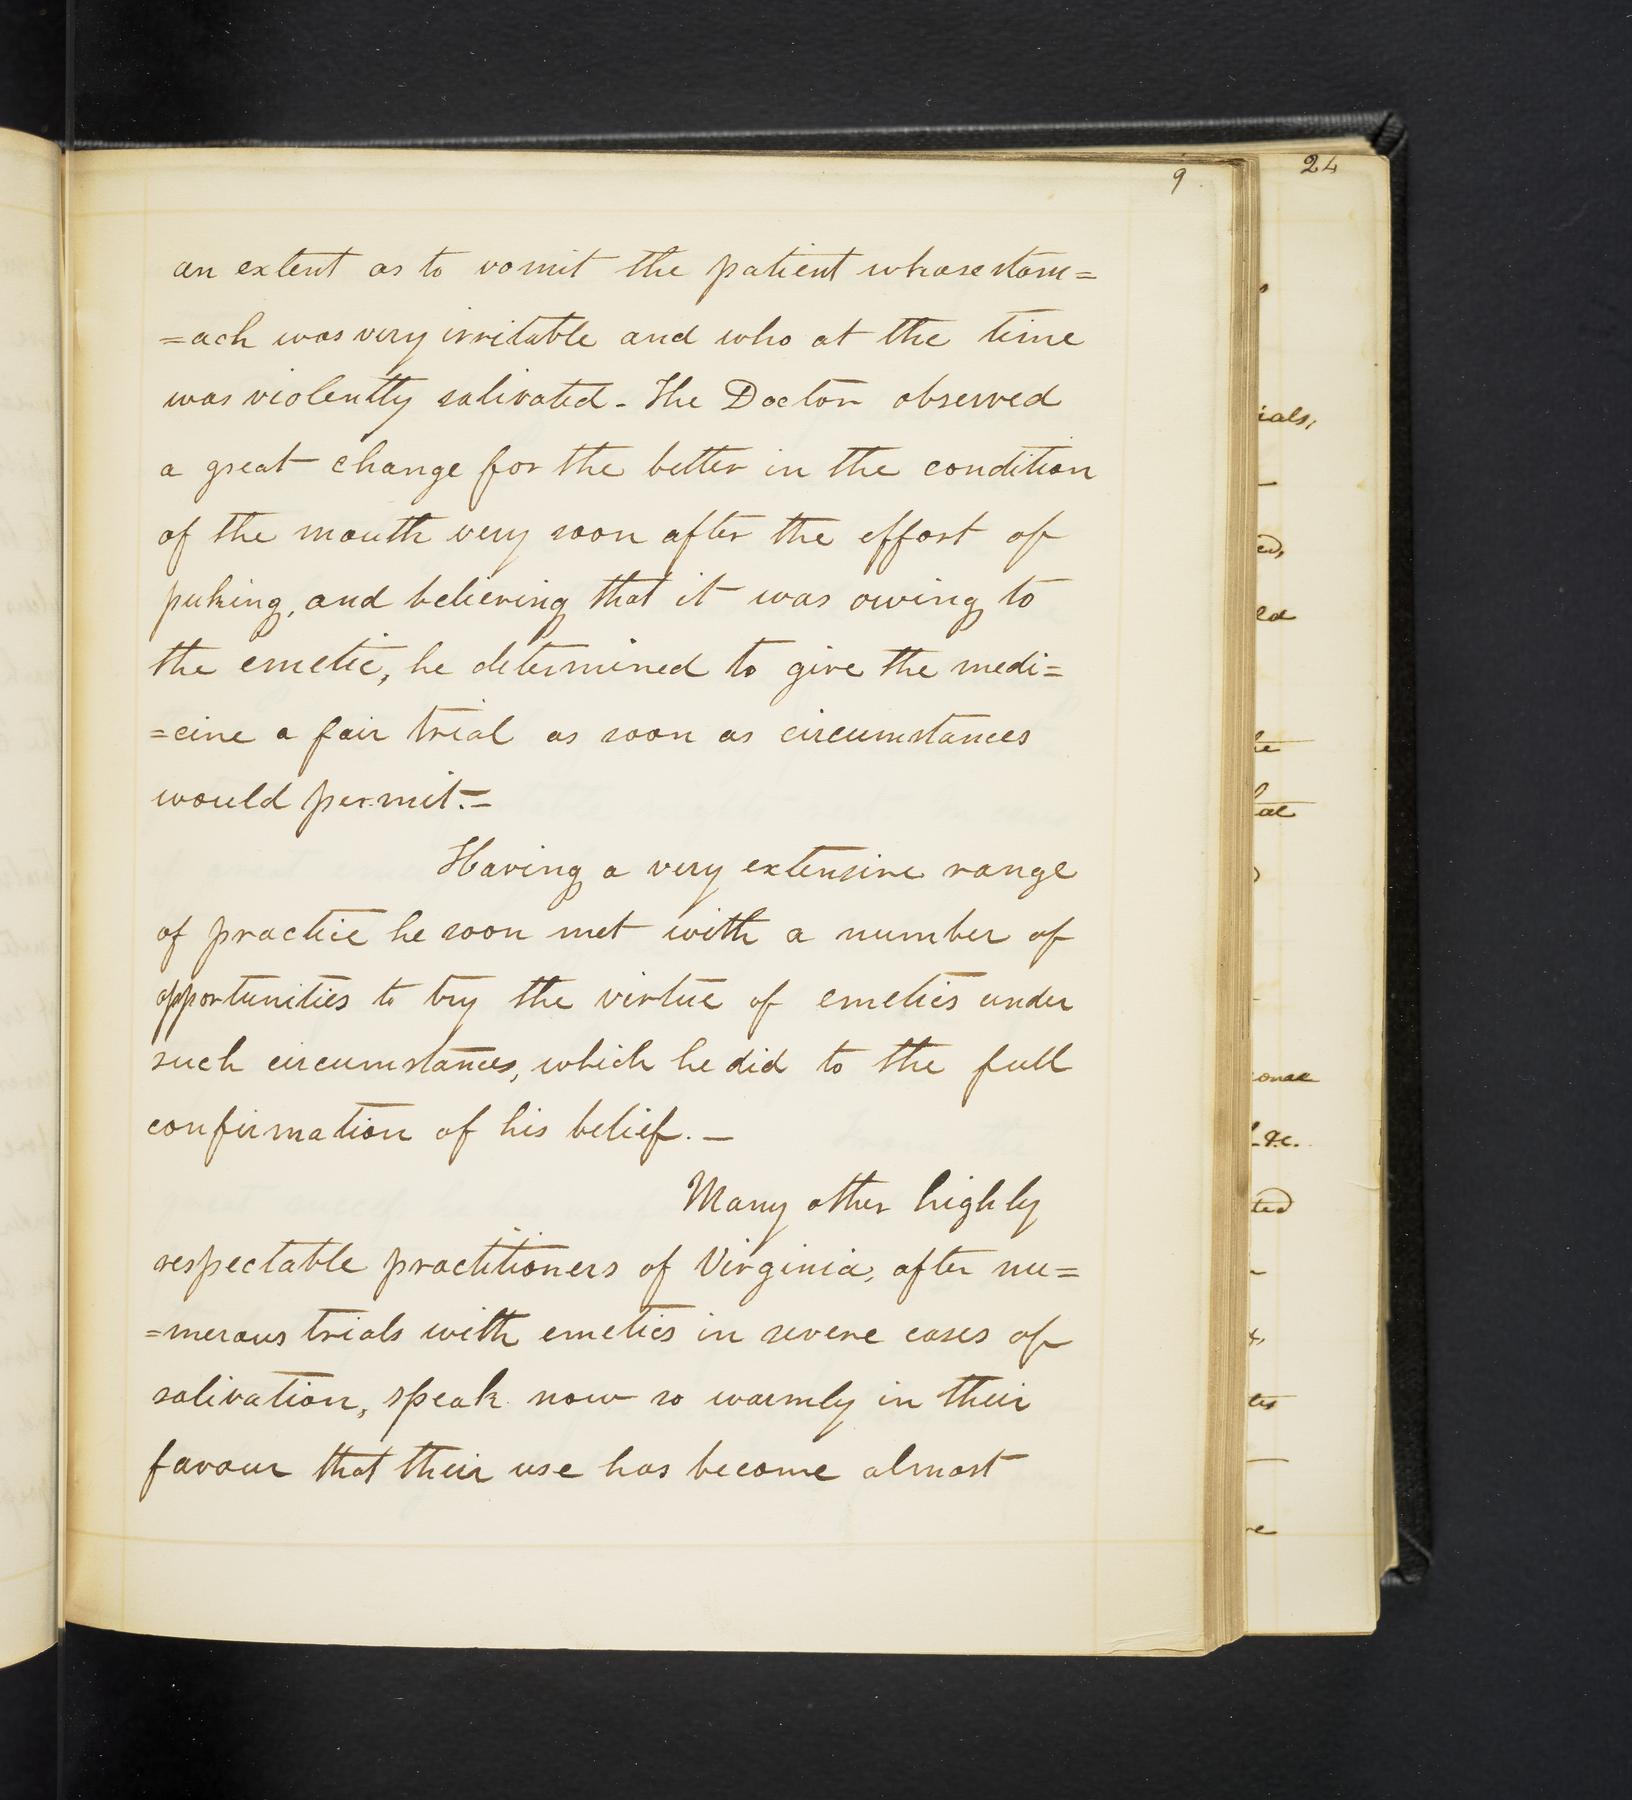 9
an extent as to vomit the patient whose stom=
=ach was very irritable and who at the time
was violently salivated - The Doctor observed
a great change for the better in the condition
of the mouth very soon after the effort of
puking, and believing that it was owing to
the emetic, he determined to give the medi=
=cine a fair trial as soon as circumstances
would permit. -
Having a very extensive range
of practice he soon met with a number of
opportunities to try the virtue of emetics under
such circumstances, which he did to the full
confirmation of his belief. -
Many other highly
respectable practitioners of Virginia, after nu=
=merous trials with emetics in severe cases of
salivation, speak now so warmly in their
favour that their use has become almost
24
&c.